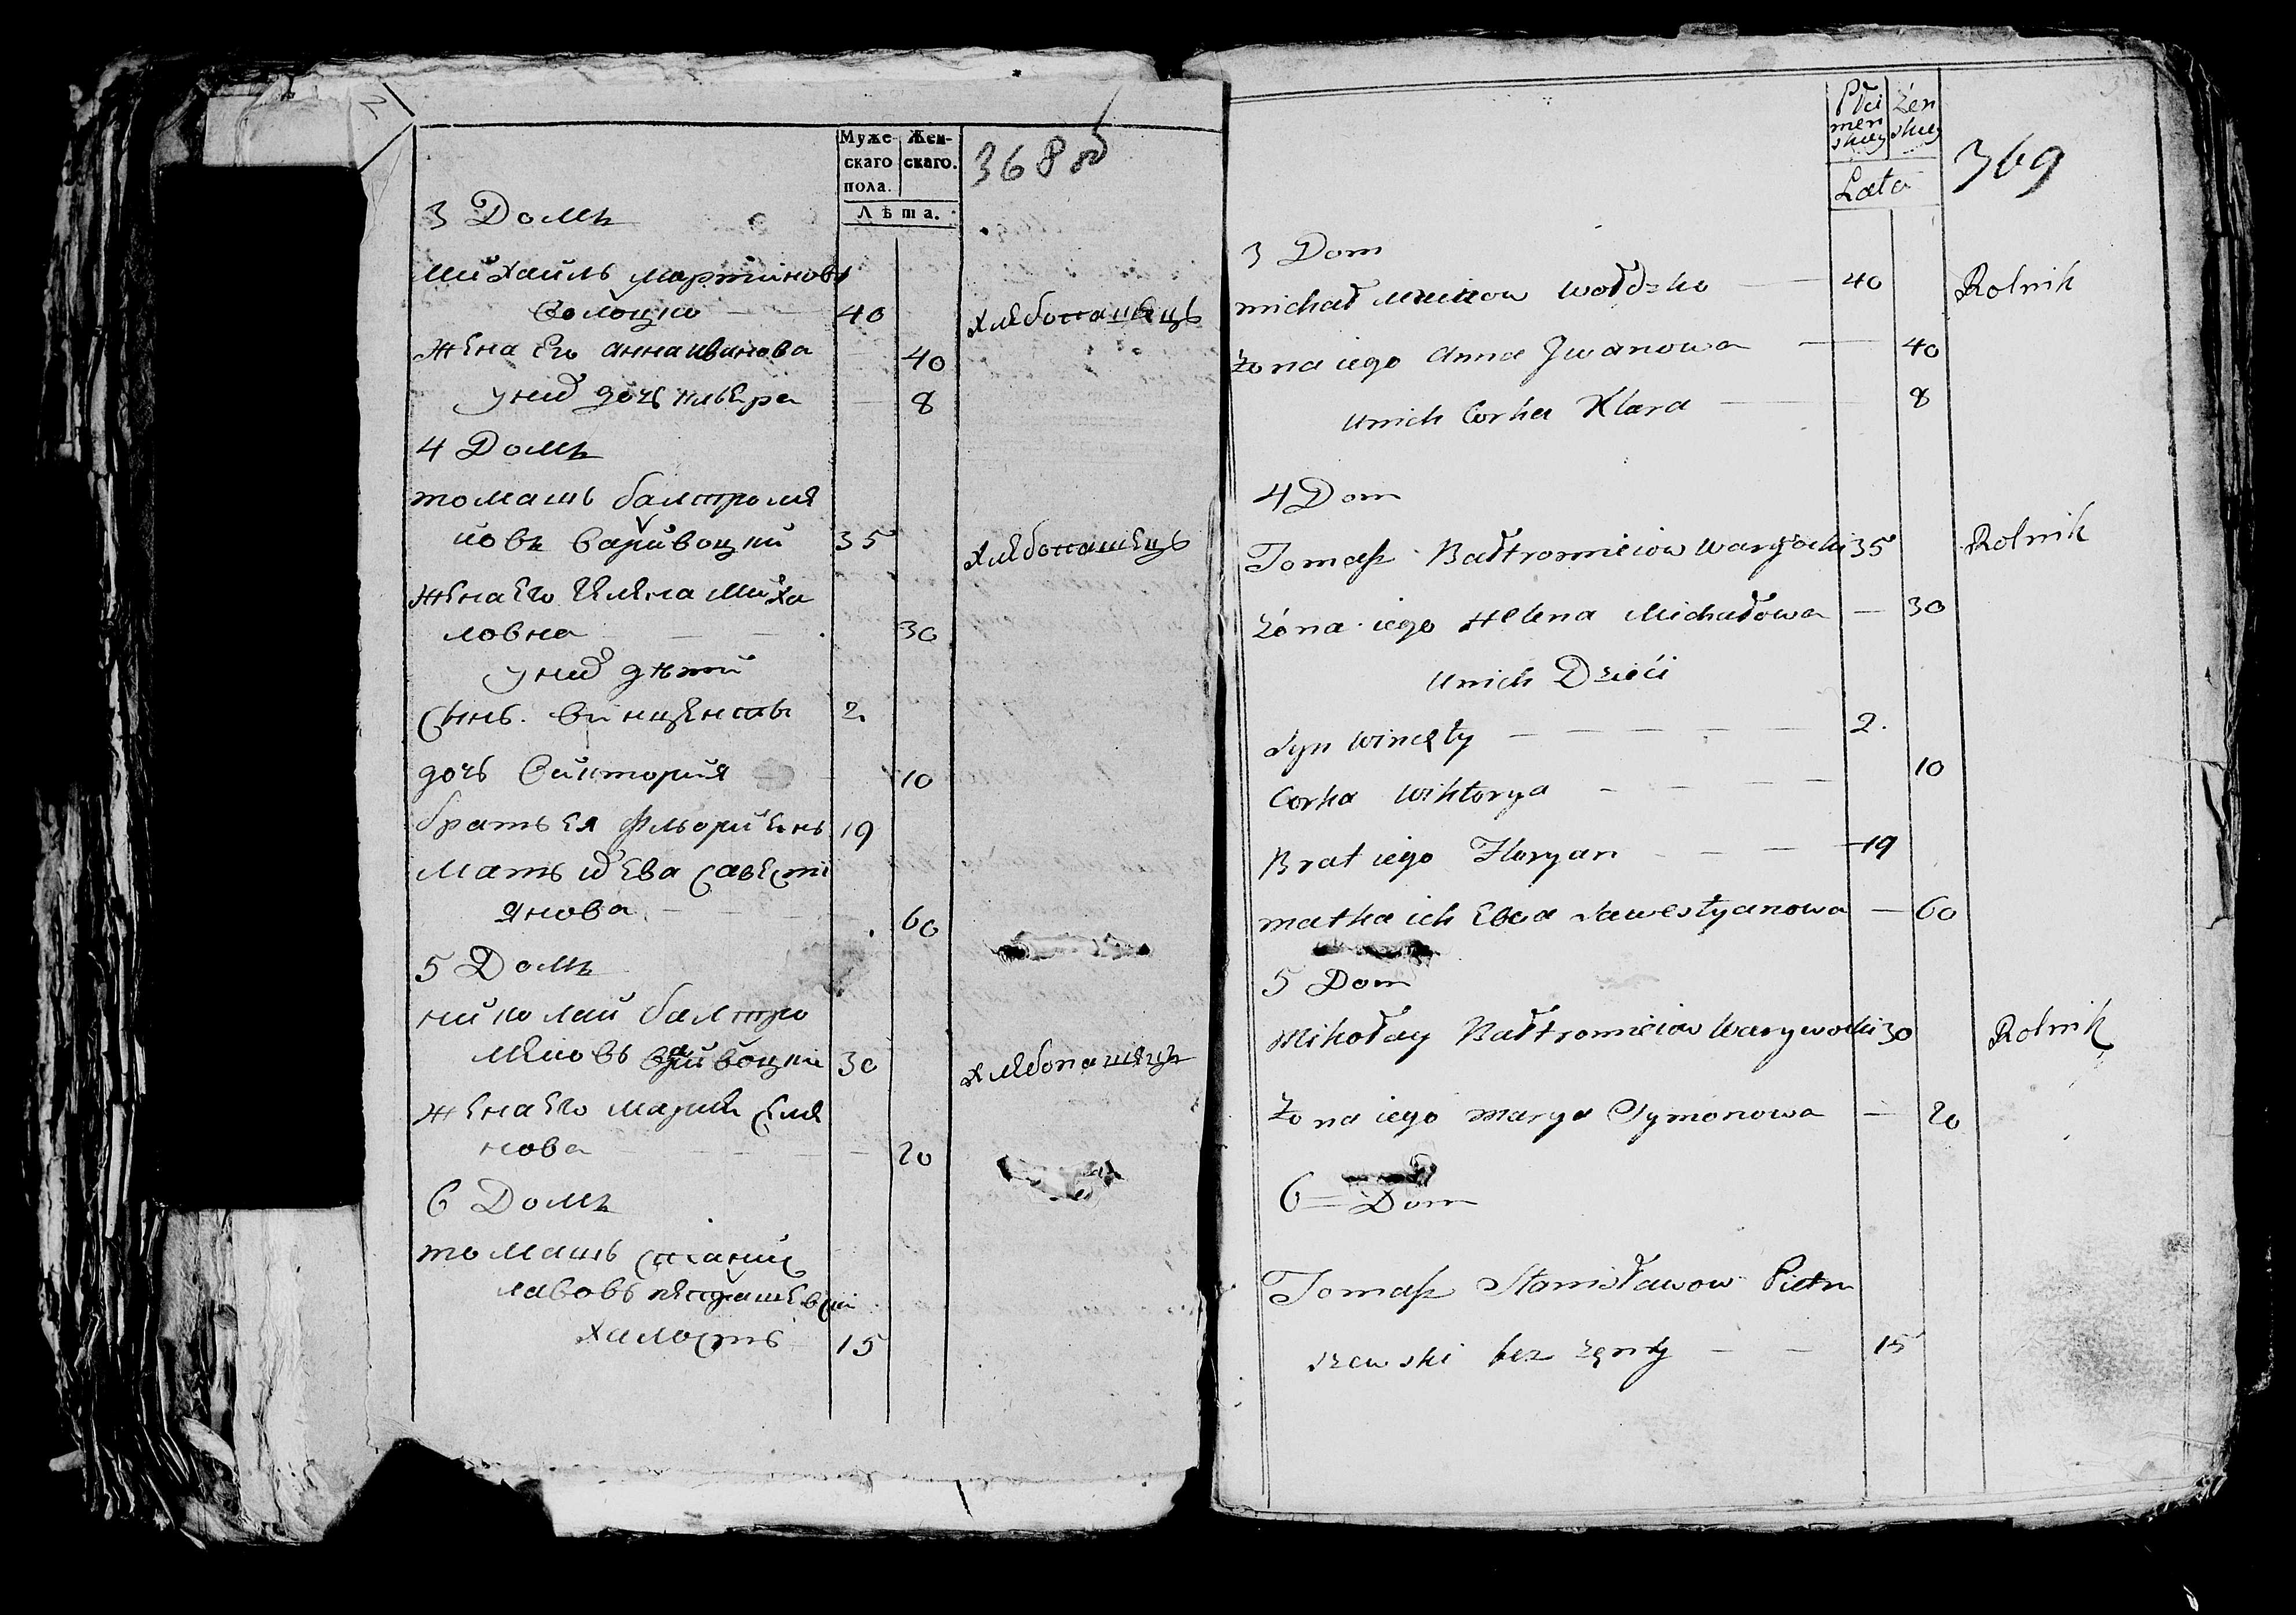 Муже-
скаго
пола.
Жен-
скаго.
Лѣта.
368 об
3 Домъ
Михаилъ Мартиновъ
Волоцко 40 хлѣбопашецъ
Жена Его Анна Иванова 40
у них дочь Клера 8
4 Домъ
Томашъ Балтроме
йовъ Варивоцкий 35 хлѣбопашецъ
Жена Его Гелена Миха
ловна 30
у них дѣти
Сынъ. Винценты 2.
дочь Виктория 10
братъ Ея Флориенъ 19
Мать их Ева Савести
янова 60
5 Домъ
Николай Балтро
меиовъ Варивоцки 30 хлебопашецъ
Жена Его Мария Семе
нова 20
6 Домъ
Томашъ Станис
лавовъ Петрашевски
халостъ 15
Płci
men
skiey
żen
skiey
Lata
369
3 Dom
Michał Wołdzko 40 Rolnik
Żona iego Anna Jwanowa 40
u nich Corka Klara 8
4 Dom
Tomasz Bałtromieiow Warywocki 35 Rolnik
Żóna iego Helena Michałowa 30
u nich Dzieci
Syn Wincęty 2.
Corka Wiktorya 10
Brat iego Floryan 19
matka ich Ewa Sawestyanowa 60
5 Dom
Mikołay Bałtromieiow Warywocki 30 Rolnik
Żona iego Marya Symonowa 20
6 Dom
Tomasz Stanisławow Pietra
szewski bez żęny 15